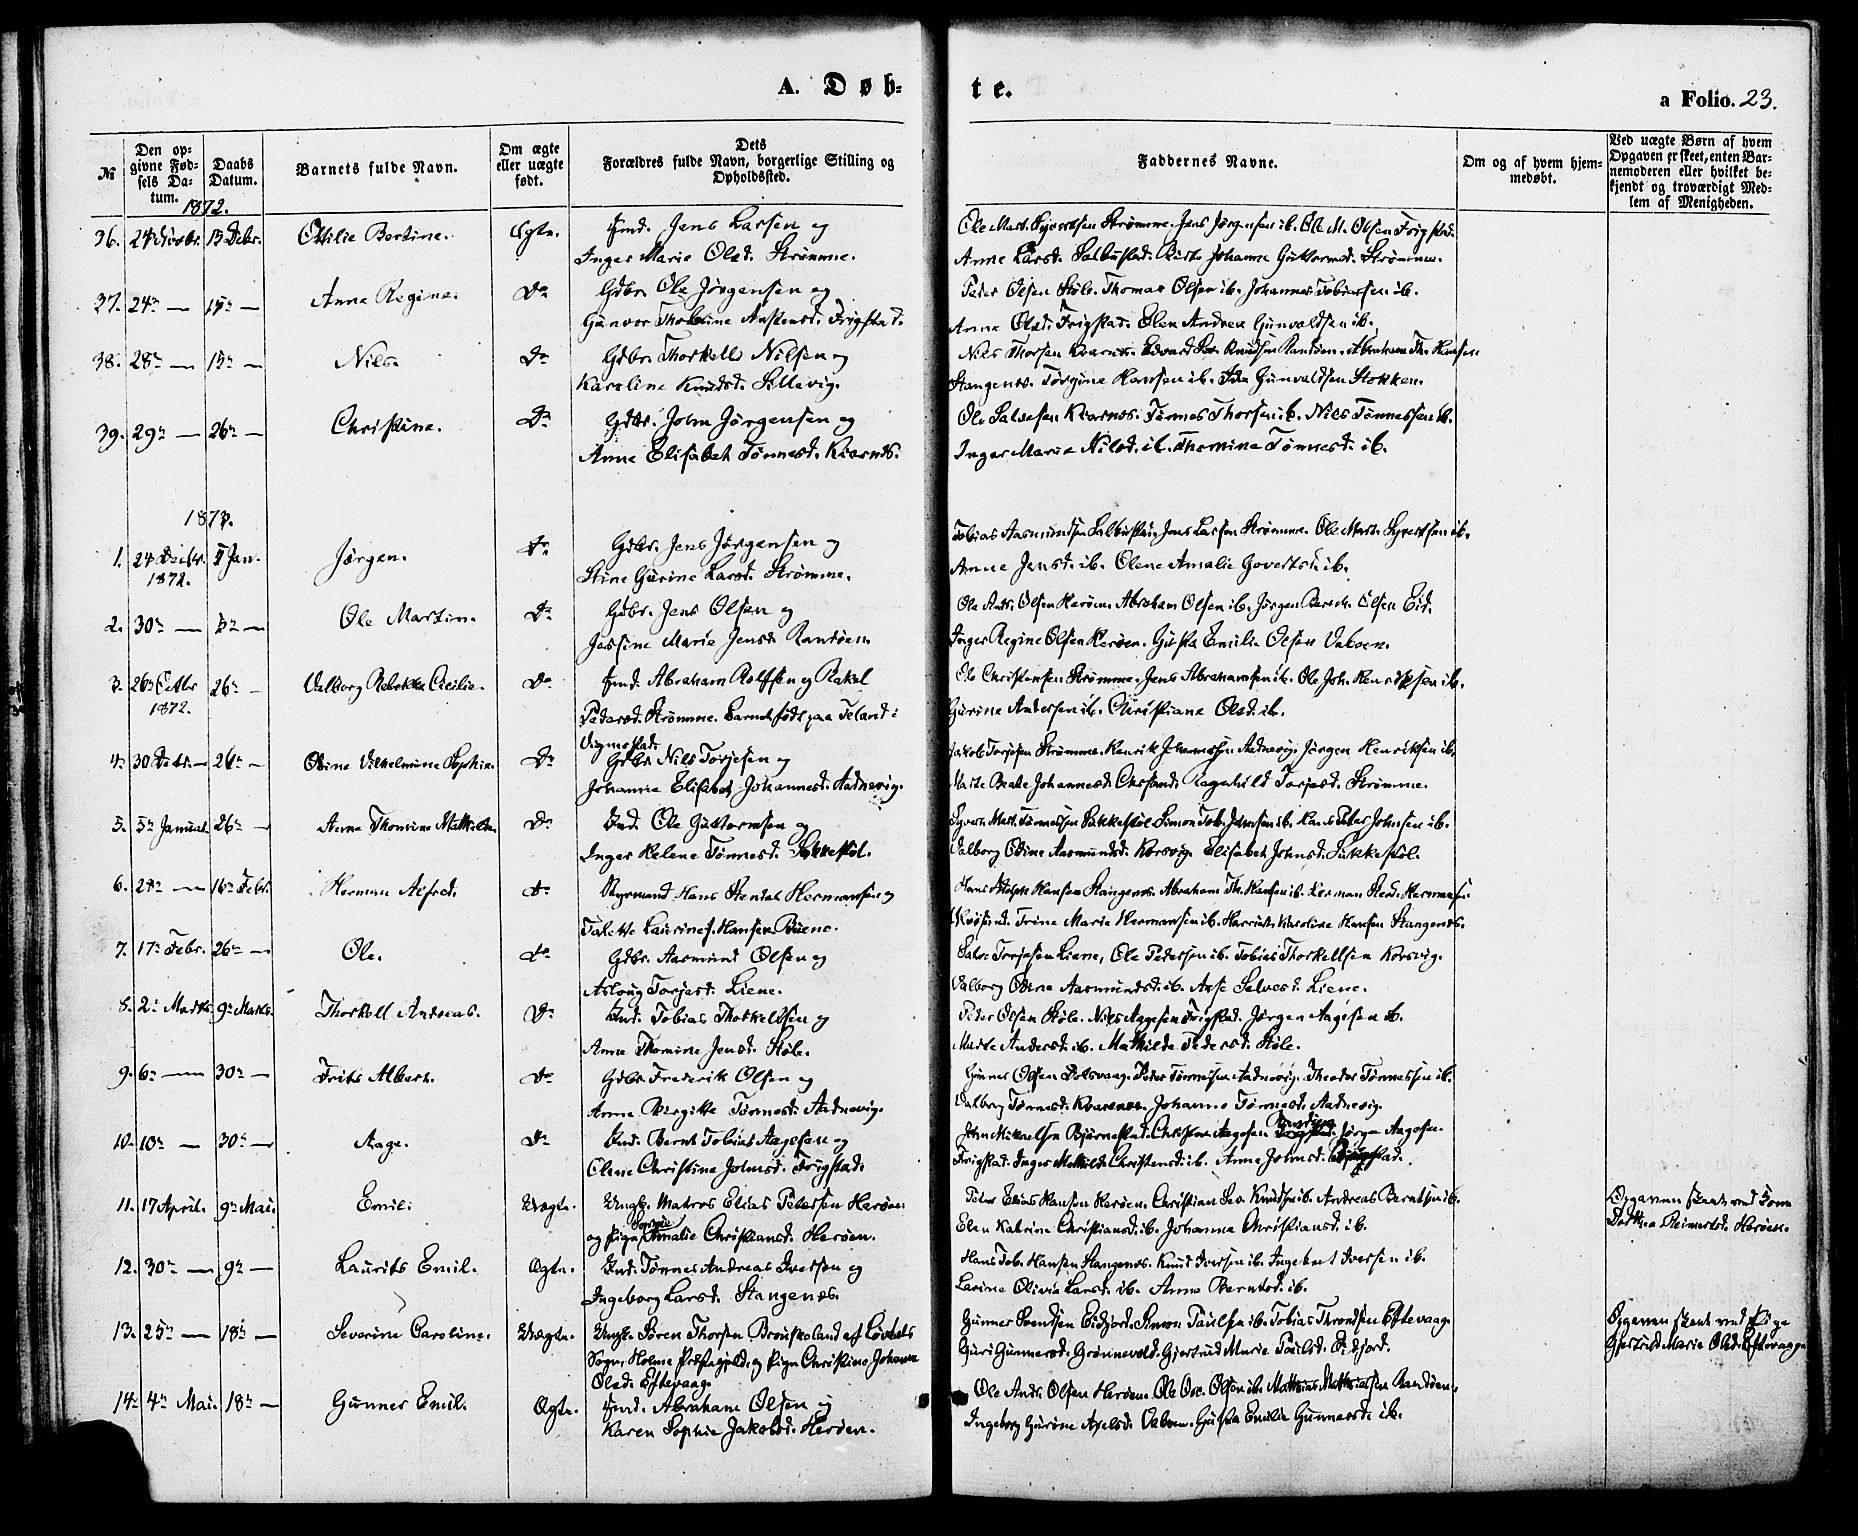 A. Døb-
te.
a Folio. 23.
№
Den op-
givne Fød-
sels Da-
tum.
Daabs
Datum.
Barnets fulde Navn.
Om ægte
eller uægte
født.
Dets
Forældres fulde Navn, borgerlige Stilling og
Opholdssted.
Faddernes Navne.
Om og af hvem hjem-
medøbt.
Ved uægte Børn af hvem
Opgaven er skeet, enten Bar-
nemoderen eller hvilket be-
kjendt og troværdigt Med-
lem af Menigheden.
1872.
36. 24 Novbr. 15 Debr. Ottilie Bertine. Ægte. Ind. Jens Larsen og
Inger Marie Olsd. Strømme.
Ole Mart. Syvertsen Strømme. Jens Jørgensen ib. Ole M. Olsen Frigstad.
Anne Larsd. Johanne Guttormsd. Strømme.
37. 24de — 15de — Anne Regine. Do Gdbr. Ole Jørgensen og
Gunvor Thomine Anstensd. Frigstad.
Peder Olsen Støle. Thomas Olsen ib. Johannes Tobiassen ib.
Anne Olsd. Frigstad. Elen Andrea Gunvaldsen ib.
38. 28de — 15de — Nils. Do Gdbr. Thorkell Nilsen og
Karoline Knudsd. Sellevig.
Nils Thorsen Kvarnes. Edvard Sev. Knudsen Randøen. Abraham Th. Hansen
Stangenes. Torgine Hansen ib. Ida Gunvaldsen Stokken.
39. 29de — 26de — Christine. Do Gdbr. John Jørgensen og
Anne Elisabet Tønnesd. Kvarnes.
Ole Salvesen Kvarnes. Tønnes Thorsen ib. Nils Tønnessen ib.
Inger Marie Nilsd. ib. Thomine Tønnesd. ib.
1873.
1. 24 Decbr. 5 Jan. Jørgen. Do Gdbr. Jens Jørgensen og
1872.
Stine Gurine Larsd. Strømme.
Tobias Aasmundsen Jens Larsen Strømme. Ole Mart. Syvertsen ib.
Anne Jensd. ib. Olene Amalie Govertsd. ib.
2. 30te — 5te — Ole Martin. Do Gdbr. Jens Olsen og
Jossine Marie Jensd. Randøen
Ole Andr. Olsen Herøen. Abraham Olsen ib. Jørgen Olsen Eid.
Inger Regine Olsen Herøen. Gusta Emilie Olsen Vaboen.
3. 26 26de — Valborg Rebekka Cecilie. Do Ind. Abraham Rolfsen og Rakel
1872.
Pedersd. Strømme. Barnet født paa Teland i
Vigmostad.
Ole Christensen Strømme. Jens Abrahamsen ib. Ole Joh. Henriksen ib.
Gurine Andersen ib. Christiane Olsd. ib.
4. 30 Debr. — 26de — Odine Vilhelmine Sophie. Do Gdbr. Nils Torjesen og
Johanne Elisabet Johannesd. Aadnevig.
Jakob Torjesen Strømme. Henrik Johannessen Aadnevig. Jørgen Henriksen ib.
Marte Beate Johannesd. Chrsand. Ragnhild Torjesd. Strømme.
5. 5te Januar. 26de — Anne Thomine Mathilde. Do Ind. Ole Guttormsen og
Inger Helene Tønnesd. Sukkestøl.
Syvert Mart. Tønnessen Sukkestøl. Simon Tob. Johnsen ib. Hans Peter Johnsen ib.
Valborg Odine Aasmundsd. Korsvig. Elisabet Johnsd. Sukkestøl.
6. 16de Febr. Herman Alfred. Do Styrmand Hans Hermansen og
Talette Laurine f. Hansen Buene.
Hans Adolph Hansen Stangenes. Abraham Th. Hansen ib. Herman Hermansen
Trine Marie Hermansen ib. Karoline Hansen Stangenes.
7. 17de Febr. 26de — Ole. Do Gdbr. Aasmund Olsen og
Aslaug Torjesd. Liene.
Salve Torjesen Liene, Ole Pedersen ib. Tobias Thorkellsen Korsvig.
Valborg Odine Aasmundsd. ib. Aase Salvesd. Liene.
8. 2de Marts. 9de Marts. Thorkell Andreas. Do Ind. Tobias Thorkelsen og
Anne Thomine Jensd. Støle.
Peder Olsen Støle. Nils Aagesen Frigstad. Jørgen Aagesen ib.
Marte Andersd. ib. Mathilde Pedersd. Støle.
9. 6te — 30te — Frits Albert. Do Gdbr. Frederik Olsen og
Anne Birgitte Tønnesd. Aadnevig.
Gunner Olsen Peder Tønnesen Aadnevig. Theodor Tønnessen ib.
Valborg Tønnesd. Kvarenes. Johanne Tønnesd. Aadnevig.
10. 10de — 30te — Aage. Do Ind. Bernt Tobias Aagesen og
Olene Christine Johnsd. Frigstad.
John Mikaelsen Bjørnestad. Christen Aagesen Randøen Jørgen Aagesen
Frigstad. Inger Mathilde Christensd. ib. Anne Johnsd.
11. 17 April. 9de Mai. Emil. Uægte. Ungk. Matros Elias Petersen Herøen
og Pige Sophie Amalie Christiansd. Herøen.
Peder Elias Hansen Herøen. Christian Sev. Knudsen ib. Andreas Berntsen ib.
Elen Katrine Christiansd. ib. Johanne Christiansd. ib.
Opgaven skeet ved Kone
Dorthea Reinertsd. Herøen.
12. 30te — 9de — Laurits Emil. Ægte. Ind. Tønnes Andreas Iversen og
Ingeborg Larsd. Stangenes.
Hans Tob. Hansen Stangenes. Knud Iversen ib. Ingebret Iversen ib.
Larine Olivia Larsd. ib. Anne Berntsd. ib.
13. 25de — 18de — Severine Caroline. Uægte. Ungk. Søren Thorsen Brouskeland af Løvdals
Sogn, Holme Præstegjeld, og Pige Christine Johanne
Olsd. Eftevaag.
Gunner Svendsen Eidjord. Simon Paulsen ib. Tobias Throndsen Eftevaag.
Guri Gunnersd. Grønnevold. Gjertrud Marie Paulsd. Eidjord.
Opgaven skeet ved Pige
Gjertrud Marie Olsd. Eftevaag.
14. 4de Mai. 18de — Gunner Emil. Ægte. Ind. Abraham Olsen og
Karen Sophie Jakobsd. Herøen.
Ole Andr. Olsen Herøen. Ole Osc. Olsen ib. Mathias Mathiassen Randøen.
Ingeborg Gurine Axelsd. Vaboen. Gusta Emilie Gunnersd. ib.